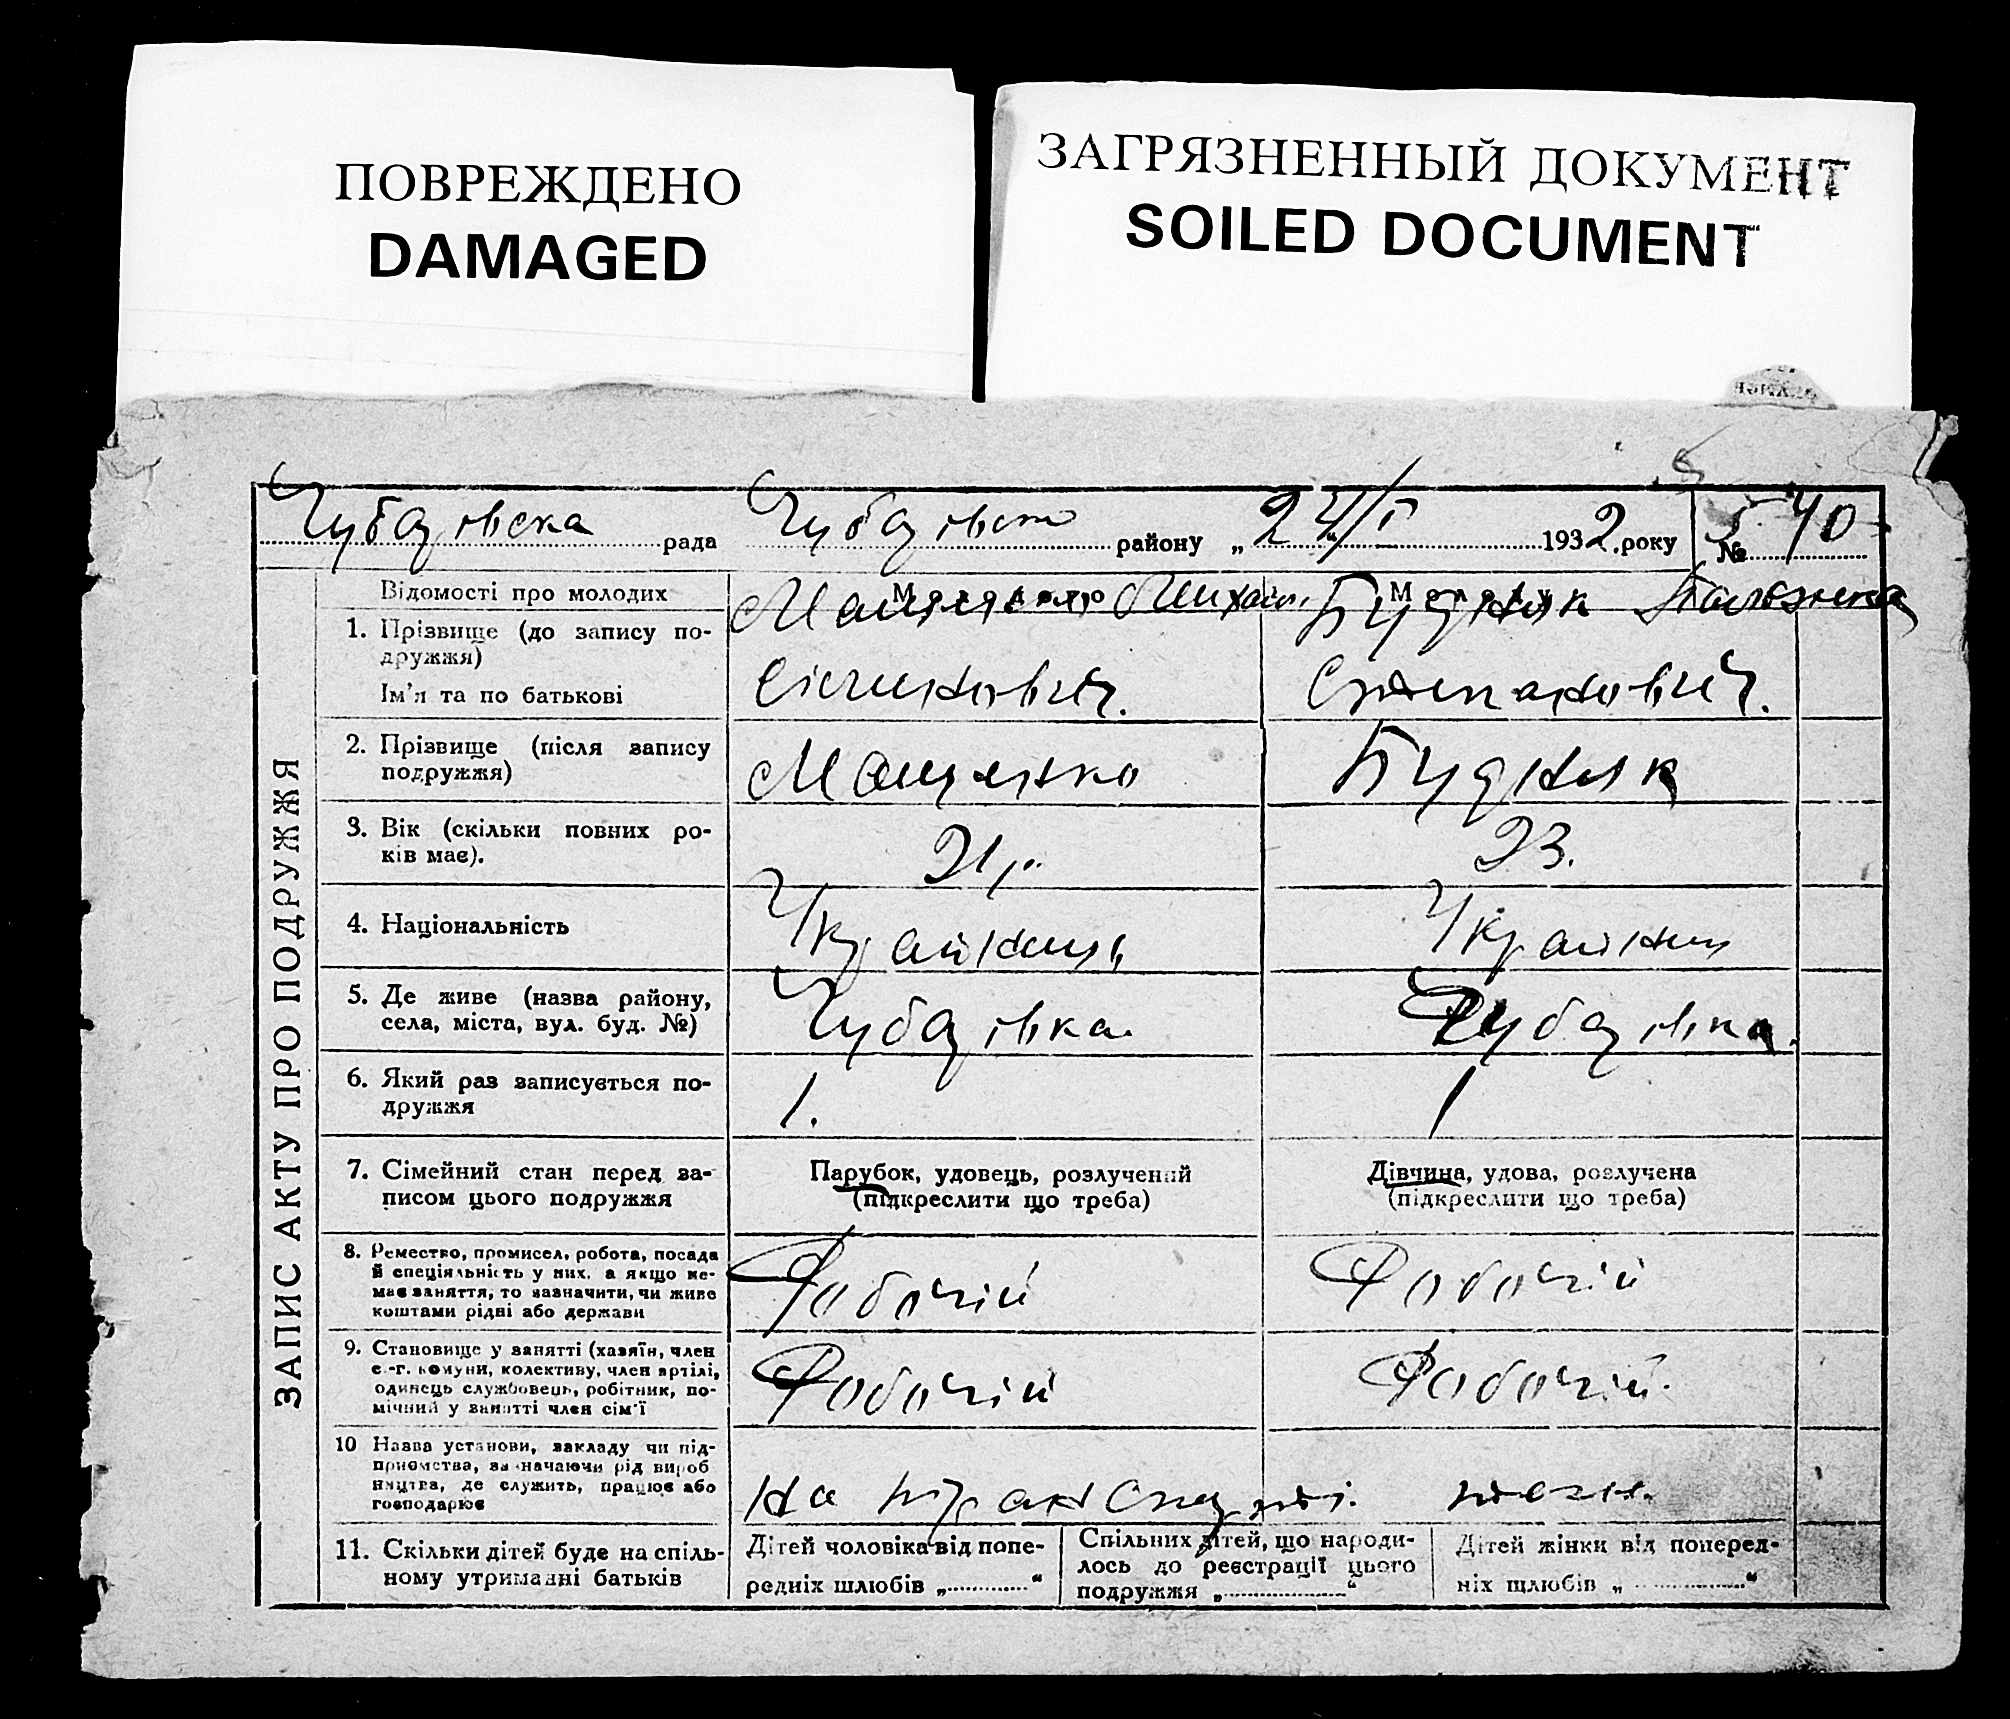 ПОВРЕЖДЕНО
DAMAGED
ЗАГРЯЗНЕННЫЙ ДОКУМЕНТ
SOILED DOCUMENT
Чубарівска рада Чубарівск району „24/I 1932 року № 40
ЗАПИС АКТУ ПРО ПОДРУЖЖЯ
Відомості про молодих
Мащенко Михаил Будняк
1. Прізвище (до запису по-
дружжя)
Ім'я та по батькові
Степанович.
2. Прізвище (після запису
подружжя)
Мащенко Будняк
3. Вік (скільки повних ро-
ків має).
21 р. 23.
4. Національність
5. Де живе (назва району,
села, міста, вул. буд. №)
Чубарівка. Чубарівка.
6. Який раз записується по-
дружжя
1. 1
7. Сімейний стан перед за-
писом цього подружжя
Парубок, удовець, розлучений
(підкреслити що треба)
Дівчина, удова, розлучена
(підкреслити що треба)
8. Ремество, промисел, робота, посада
й спеціяльність у них, а якщо не-
має заняття, то зазначити, чи живе
коштами рідні або держави
Рабочій Рабочій
9. Становище у занятті (хазяїн, член
с.-г. комуни, колективу, член артілі,
одинець службовець, робітник, по-
мічний у занятті член сім'ї
Рабочій Рабочій.
10 Назва установи, закладу чи під-
приємства, зазначаючи рід вироб
ництва, де служить, працює або
господарює
На
11. Скільки дітей буде на спіль-
ному утриманні батьків
Дітей чоловіка від попе-
редніх шлюбів „ “
Спільних дітей, що народи-
лось до реєстрації цього
подружжя „ “
Дітей жінки від поперед-
ніх шлюбів „ “